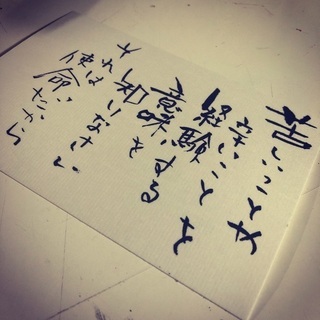 苦しいことや
辛いことを
経験する
意味を
知りなさい
それは
使命だから